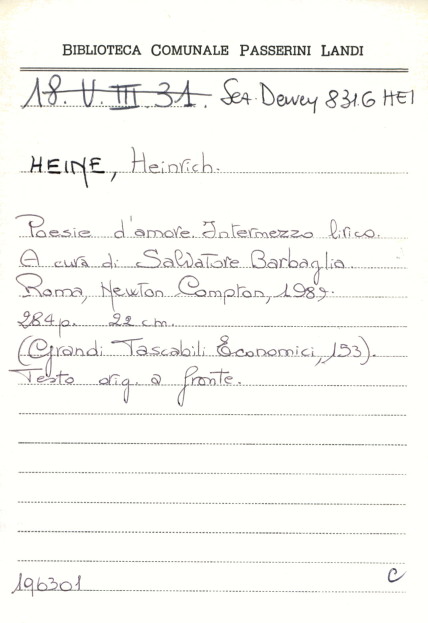 BIBLIOTECA COMUNALE PASSERINI LANDI
18. V. III. 31. Sez. Dewey 831.6 HEI
HEINE, Heinrich.
Poesie d'amore. Intermezzo lirico.
A cura di Salvatore Barbaglia.
Roma, Newton Compton, 1989.
284 p. 22 cm.
(Grandi Tascabili Economici, 153).
Testo orig. a fronte.
196301 C